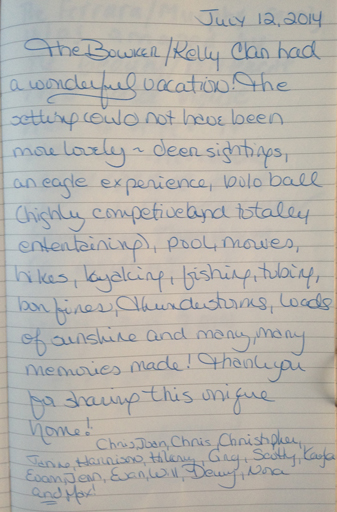 July 12, 2014
The Bowker/Kelly Clan had
a wonderful vacation! The
setting could not have been
more lovely ~ deer sightings,
an eagle experience, bolo ball
(highly competive and totaley
entertaining), pool, movies,
hikes, kayaking, fishing, tubing,
bon fires, thunderstorms, loads
of sunshine and many, many
memories made! Thank you
for sharing this unique
home!
Chris, Joan, Chris, Christopher,
Harrison, Hilary, Greg, Scotty, Kayla
Evan, Jenn, Evan, Will, Deury, Nina
and Max!